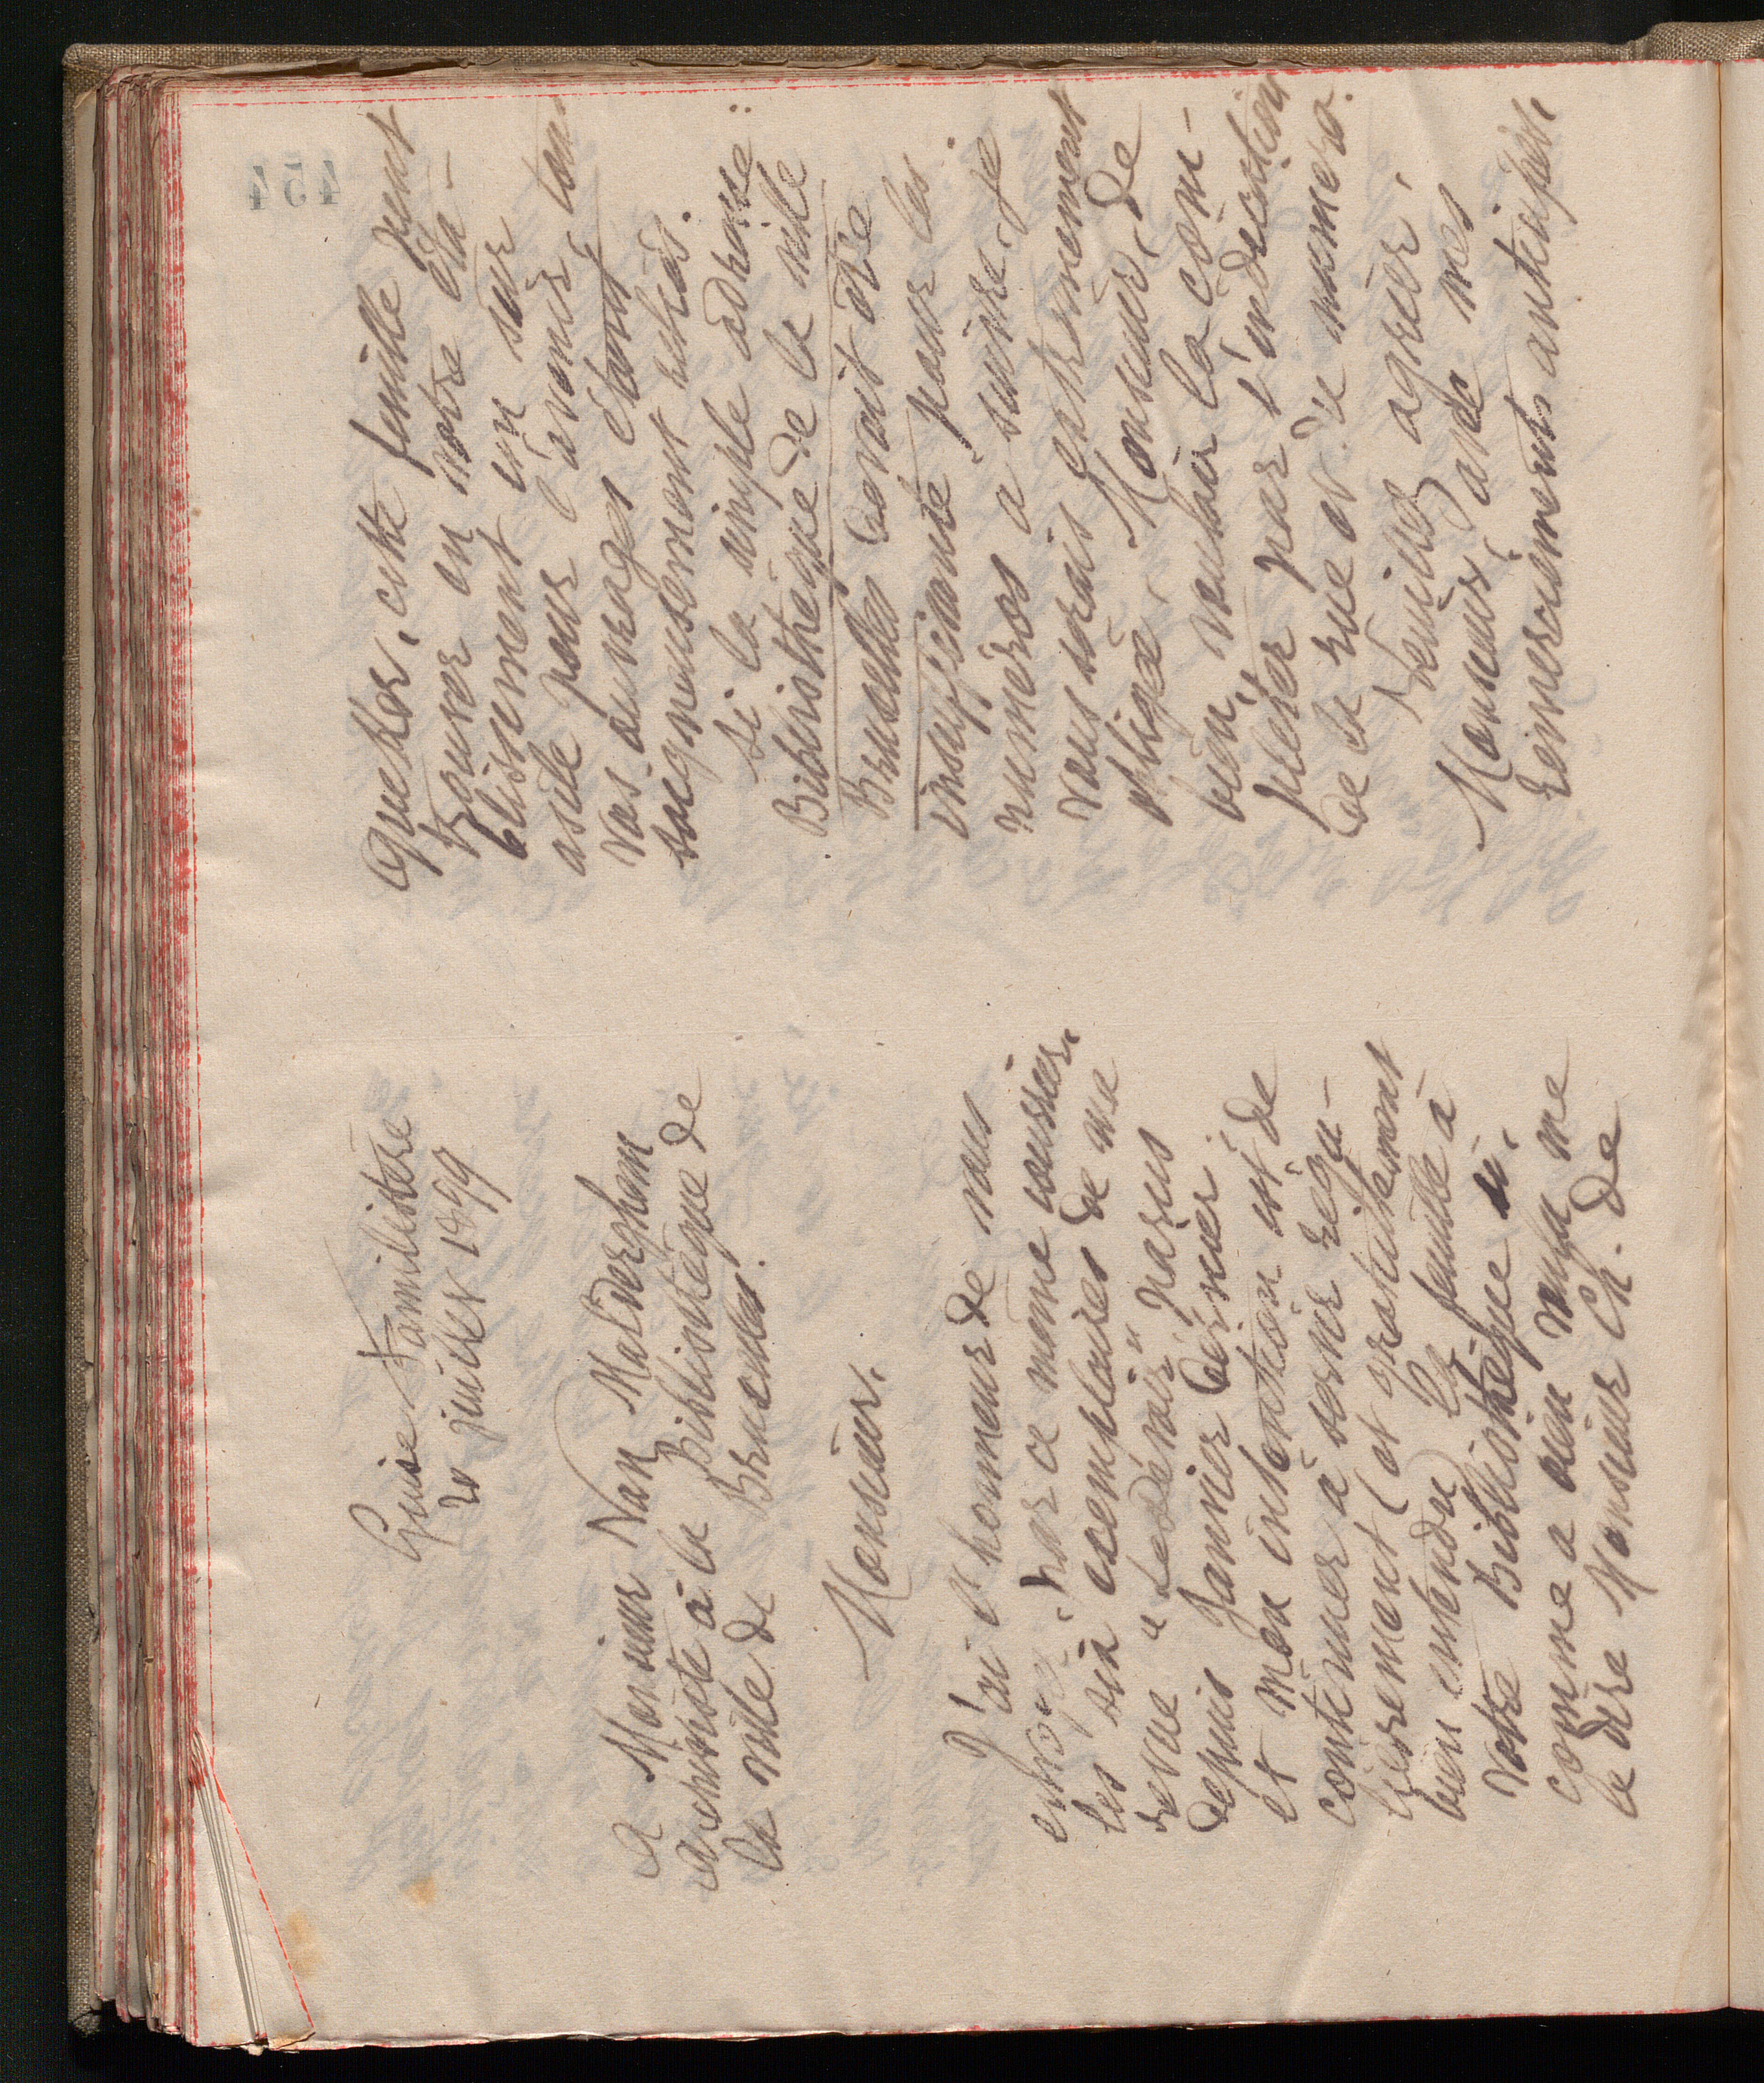 Guise Familistère
20 juillet 1899
A Monsieur Van Malderghem
archiviste à la Bibliothèque de
la ville de Bruxelles.
Monsieur,
J'ai l'honneur de vous
envoyer, par ce même courrier,
les six exemplaires de ma
revue "Le devoir" parus
depuis Janvier dernier.
et mon intention est de
continuer à servir régu-
lièrement (et gratuitement
bien entendu) la feuille à
votre Bibliothèque si,
comme a bien voulu me
le dire Monsieur Ch. De
Quéker, cette feuille peut
trouver en votre éta-
blissement un sûr
asile pour l'avenir, tous
vos ouvrages étant
soigneusement reliés.
Si la simple adresse:
Bibliothèque de la ville
Bruxelles devait être
insuffisante pour les
numéros à suivre, je
vous serais extrêmement
obligée, Monsieur, de
bien vouloir la com-
pléter par l'indication
de la rue et du numéro.
Veuillez agréer,
Monsieur, avec mes
remerciements anticipés
454